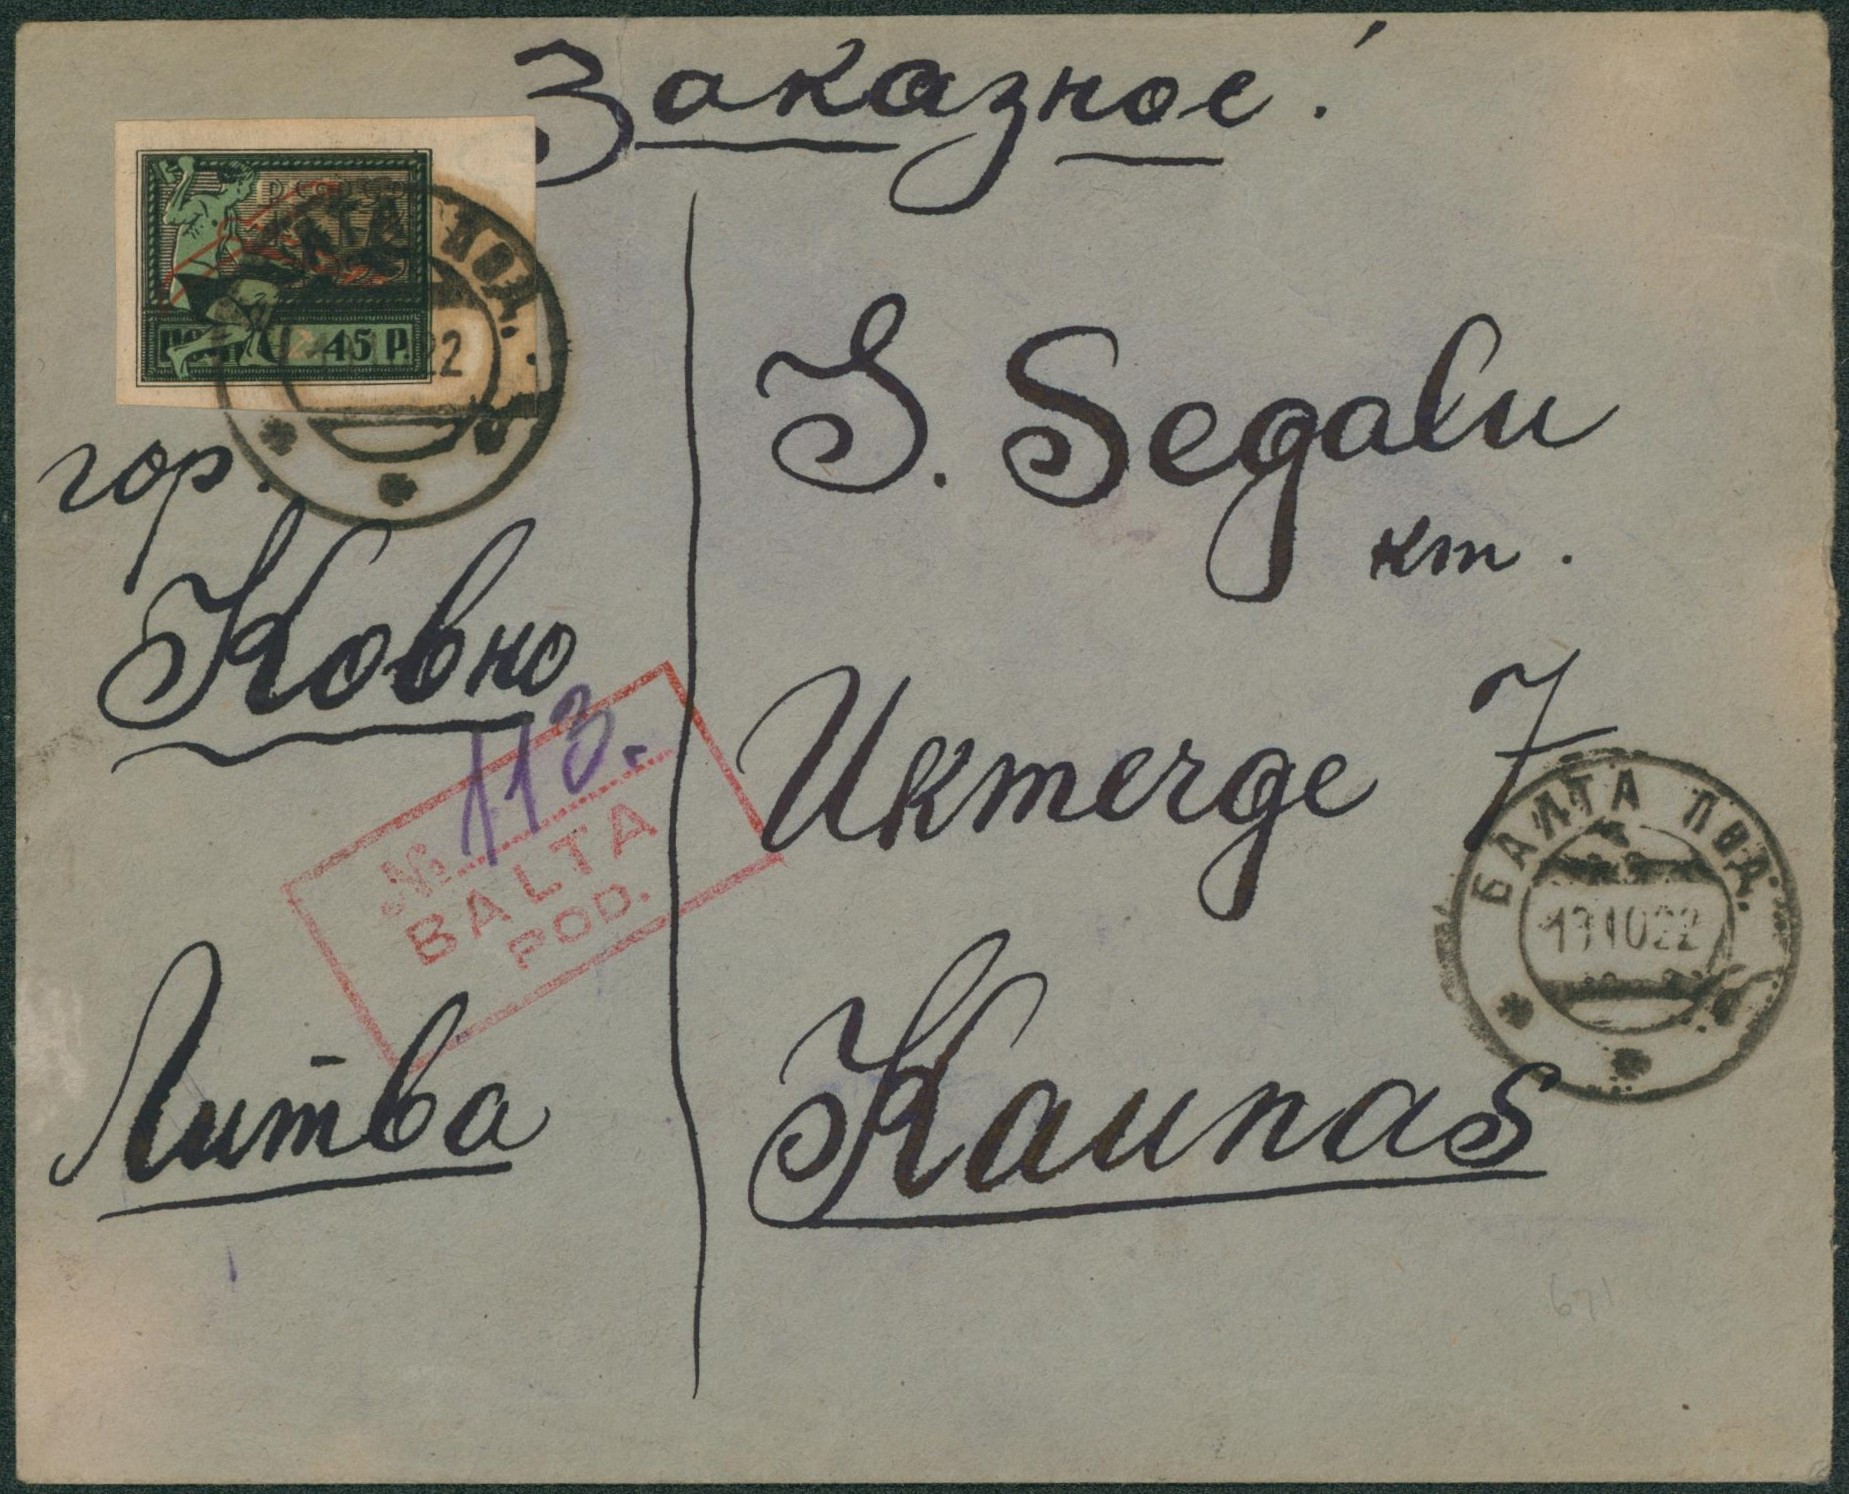 Заказное!
Р.С.Ф.С.Р.
ПОЧТА 45 Р.
БАЛТА ПОД.
22
гор.
Ковно
Литва
№ 113.
BALTA
POD.
S. Segalu
km.
Ukmerge 7
Kaunas
БАЛТА ПОД.
191022
671